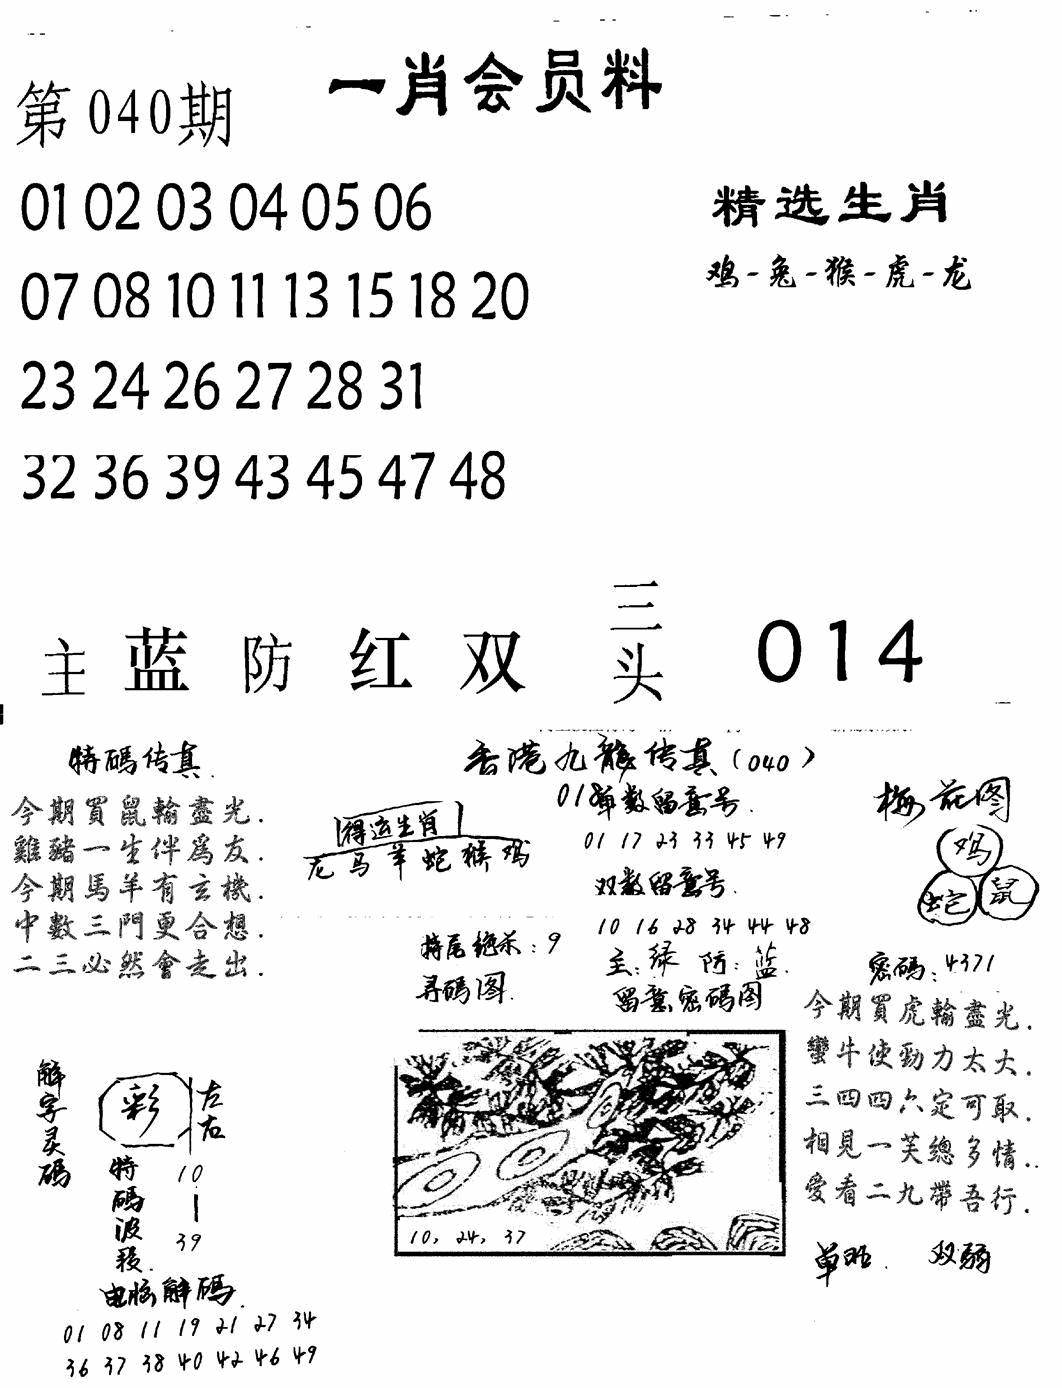 第040期
一肖会员料
01 02 03 04 05 06
07 08 10 11 13 15 18 20
23 24 26 27 28 31
32 36 39 43 45 47 48
精选生肖
鸡-兔-猴-虎-龙
主 蓝 防 红 双 三头 014
特碼传真.
今期買鼠輸盡光.
雞豬一生伴爲友.
今期馬羊有玄機.
中數三門更合想.
二三必然會走出.
香港九龍传真(040)
得运生肖
龙马羊蛇猴鸡
018单数留意号.
01 17 23 33 45 49
双数留意号.
10 16 28 34 44 48
主:绿 防:蓝.
留意密码图
特尾绝杀:9
寻码图.
10, 24, 37
梅花图
鸡
蛇 鼠
密码:4371
今期買虎輸盡光.
蠻牛使勁力太大.
三四四六定可取.
相見一笑總多情..
愛看二九帶吾行.
单旺. 双弱
解字灵码
彩
左右
特碼波段.
10—39
电脑解碼.
01 08 11 19 21 27 34
36 37 38 40 42 46 49